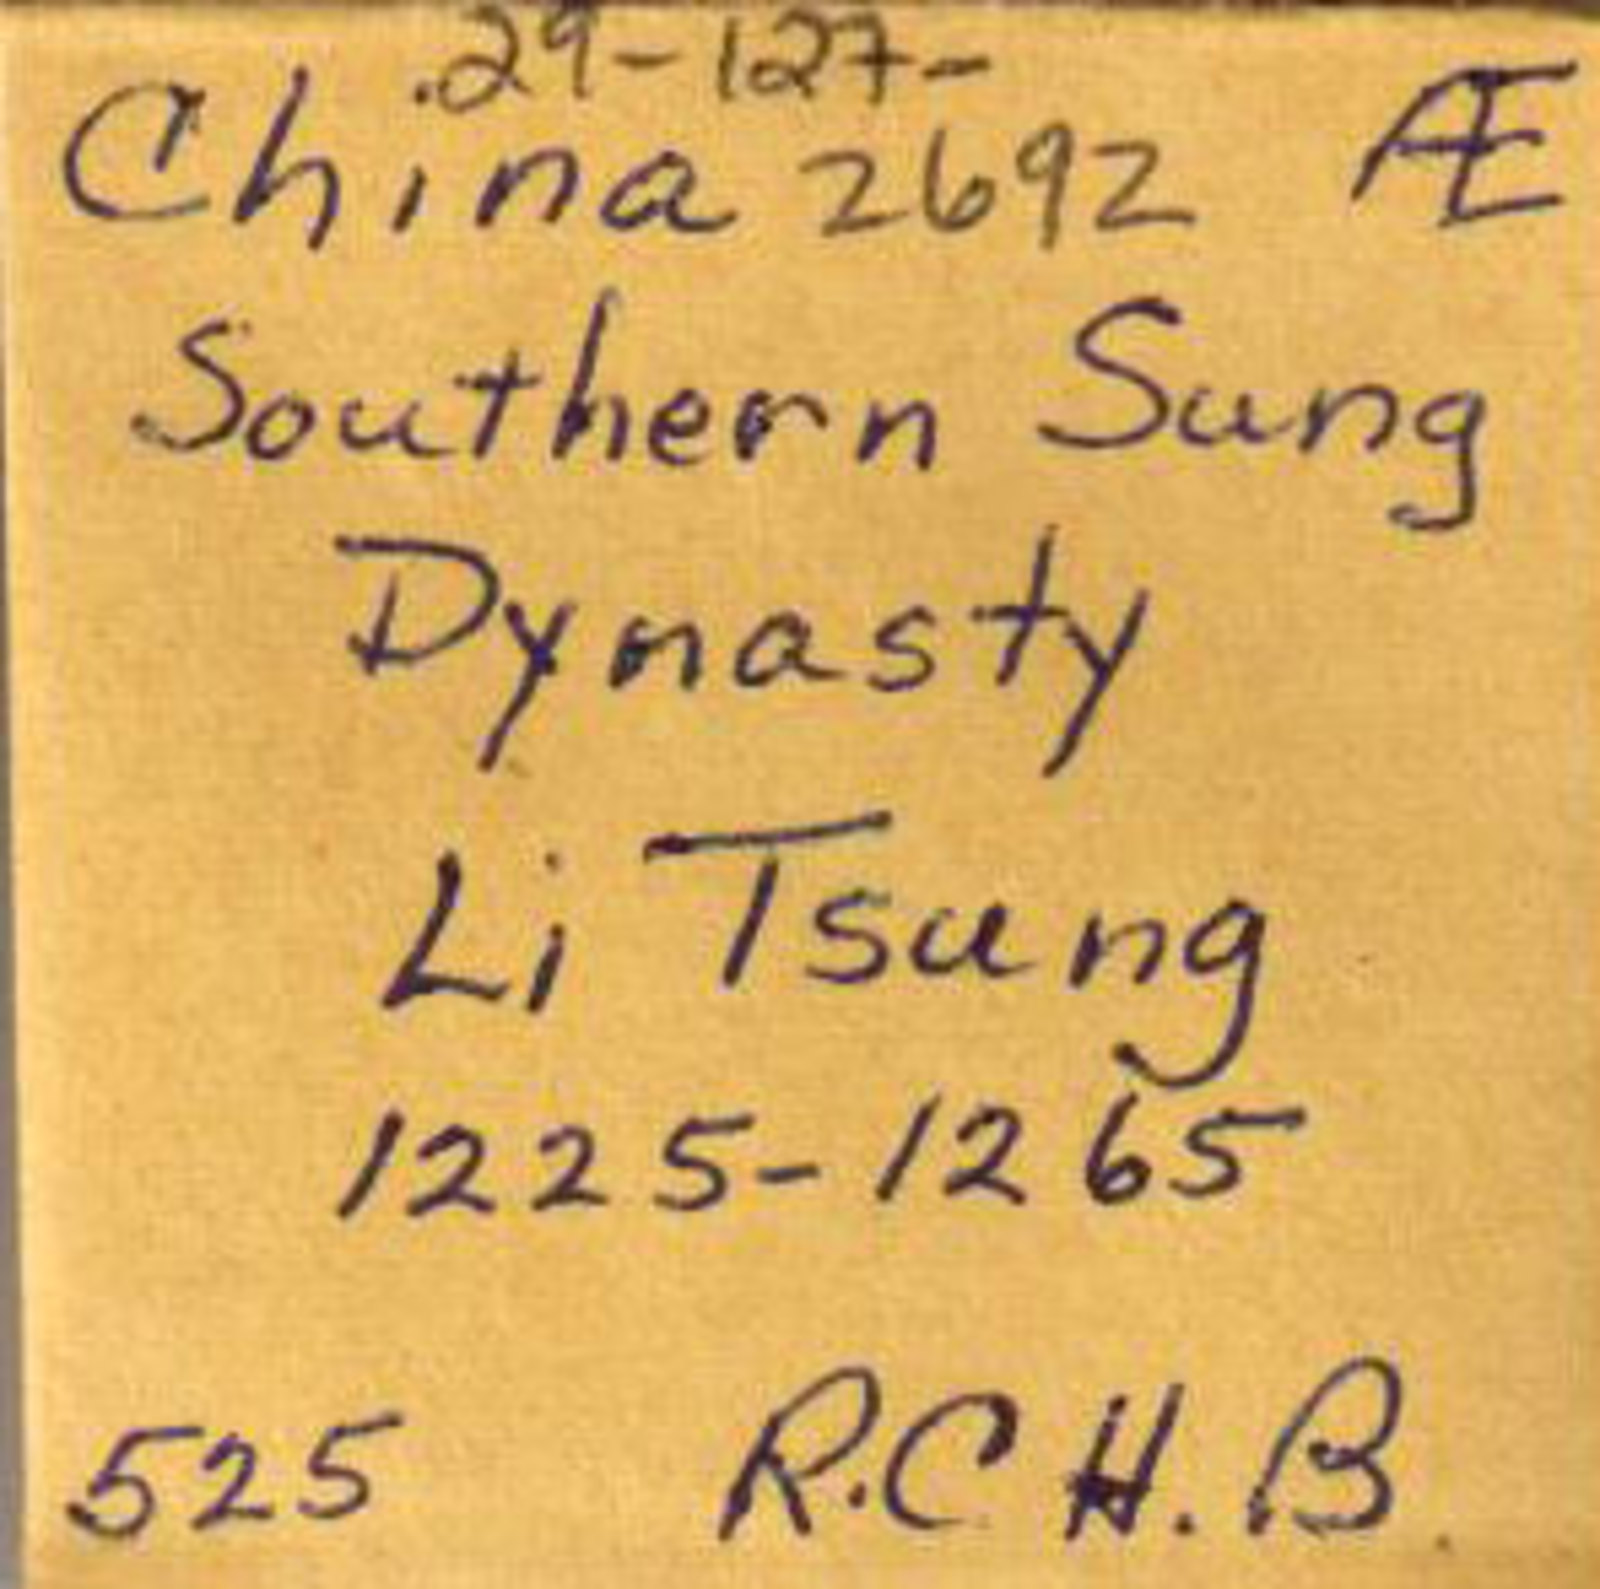 .29-127-
China 2692 Æ
Southern Sung
Dynasty
Li Tsung
1225-1265
525 R.C H. B.